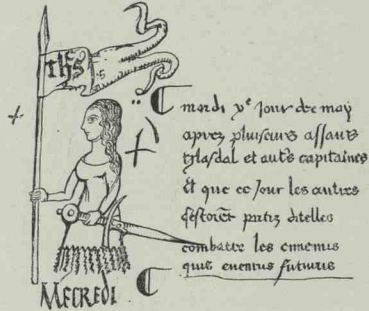 ihs
mardi xe jour de may
aprez pluiseurs assaus
Glasdal et auts capitaines
Et que ce jour les autres
sestoiet partiz dicelles
combatre les ennemis
quis euentus futurus
MECREDI